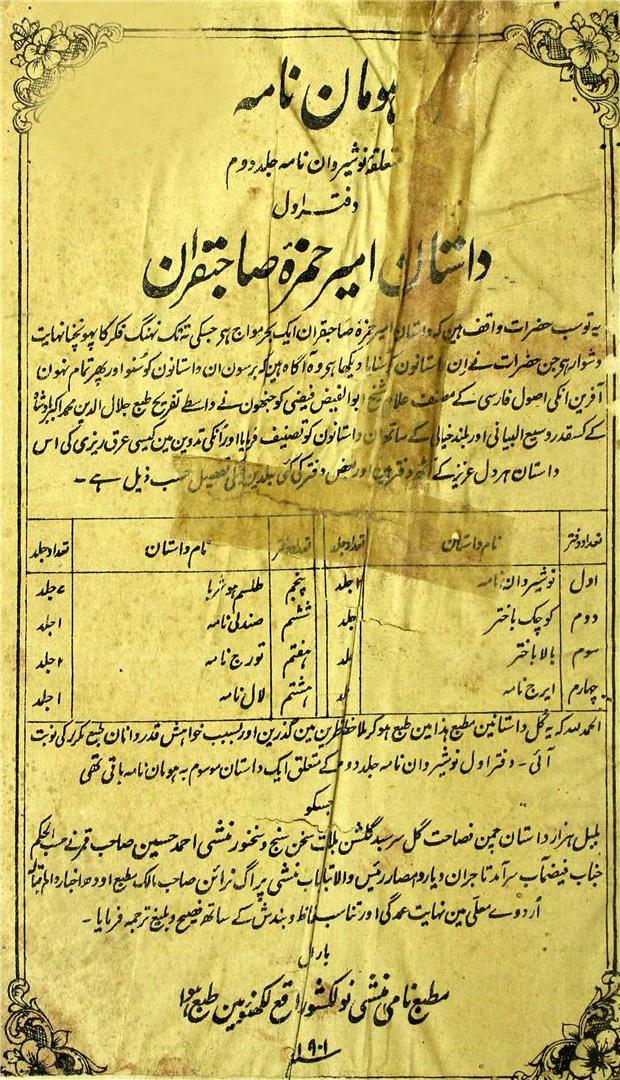 ہومان نامہ
متعلقۂ نوشیروان نامہ جلد دوم
دفتر اول
داستان امیر حمزۂ صاحبقران
یہ تو سب حضرات واقف ہین کہ داستان امیر حمزۂ صاحبقران ایک بحر مواج ہی جسکی تہ تک نہنگ فکر کا پہونچنا نہایت
دشوار ہی جن حضرات نے ان داستانون کو سنا یا دیکھا ہی وہ آگاہ ہین کہ برسون ان داستانون کو سنو اور پھر تمام نہون
آفرین انکی اصول فارسی کے مصنف علامہ شیخ ابو الفیض فیضی کو جنھون نے واسطے تفریح طبع جلال الدین محمد اکبر بادشاہ
کے کسقدر وسیع البیانی اور بلند خیالی کے ساتھ ان داستانون کو تصنیف فرمایا اور انکی تدوین مین کیسی عرق ریزی کی اس
داستان ہر دل عزیز کے آٹھ دفتر ہین اور بعض دفتر کی کئی جلدین ہین تفصیل حسب ذیل ہے ۔
تعداد دفتر نام داستان تعداد جلد تعداد دفتر نام داستان تعداد جلد
اول نوشیروان نامہ ۲ جلد پنجم طلسم ہوشربا ۷ جلد
دوم کوچک باختر جلد ششم صندلی نامہ ۱ جلد
سوم بالا باختر جلد ہفتم تورج نامہ ۲ جلد
چہارم ایرج نامہ جلد ہشتم لال نامہ ۱ جلد
الحمد للہ کہ یہ کل داستانین مطبع ہذا مین طبع ہو کر ملاحظہ ناظرین مین گذرین اور بسبب خواہش قدردانان طبع مکرر کی نوبت
آئی ۔ دفتر اول نوشیروان نامہ جلد دوم کے متعلق ایک داستان موسوم بہ ہومان نامہ باقی تھی
جسکو
بلبل ہزار داستان چمن فصاحت گل سرسبد گلشن بلاغت سخن سنج و سخنور منشی احمد حسین صاحب قمر نے حسب الحکم
جناب فیضمآب سرآمد تاجران دیار و امصار رئیس والا تبار جناب منشی پراگ نرائن صاحب مالک مطبع اودھ اخبار دام اقبالہ
اردوے معلی مین نہایت عمدگی اور تناسب الفاظ و بندش کے ساتھ فصیح و بلیغ ترجمہ فرمایا ۔
بار اول
مطبع نامی منشی نولکشور واقع لکھنؤ مین طبع ہوا
۱۹۰۱